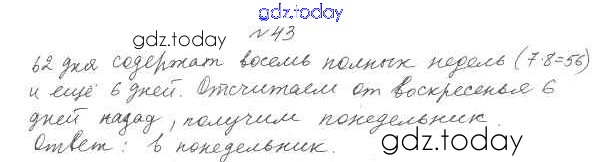 gdz.today
№43
gdz.today
62 дня содержат восемь полных недель (7·8=56)
и ещё 6 дней. Отсчитаем от воскресенья 6
дней назад, получим понедельник.
Ответ: в понедельник.
gdz.today